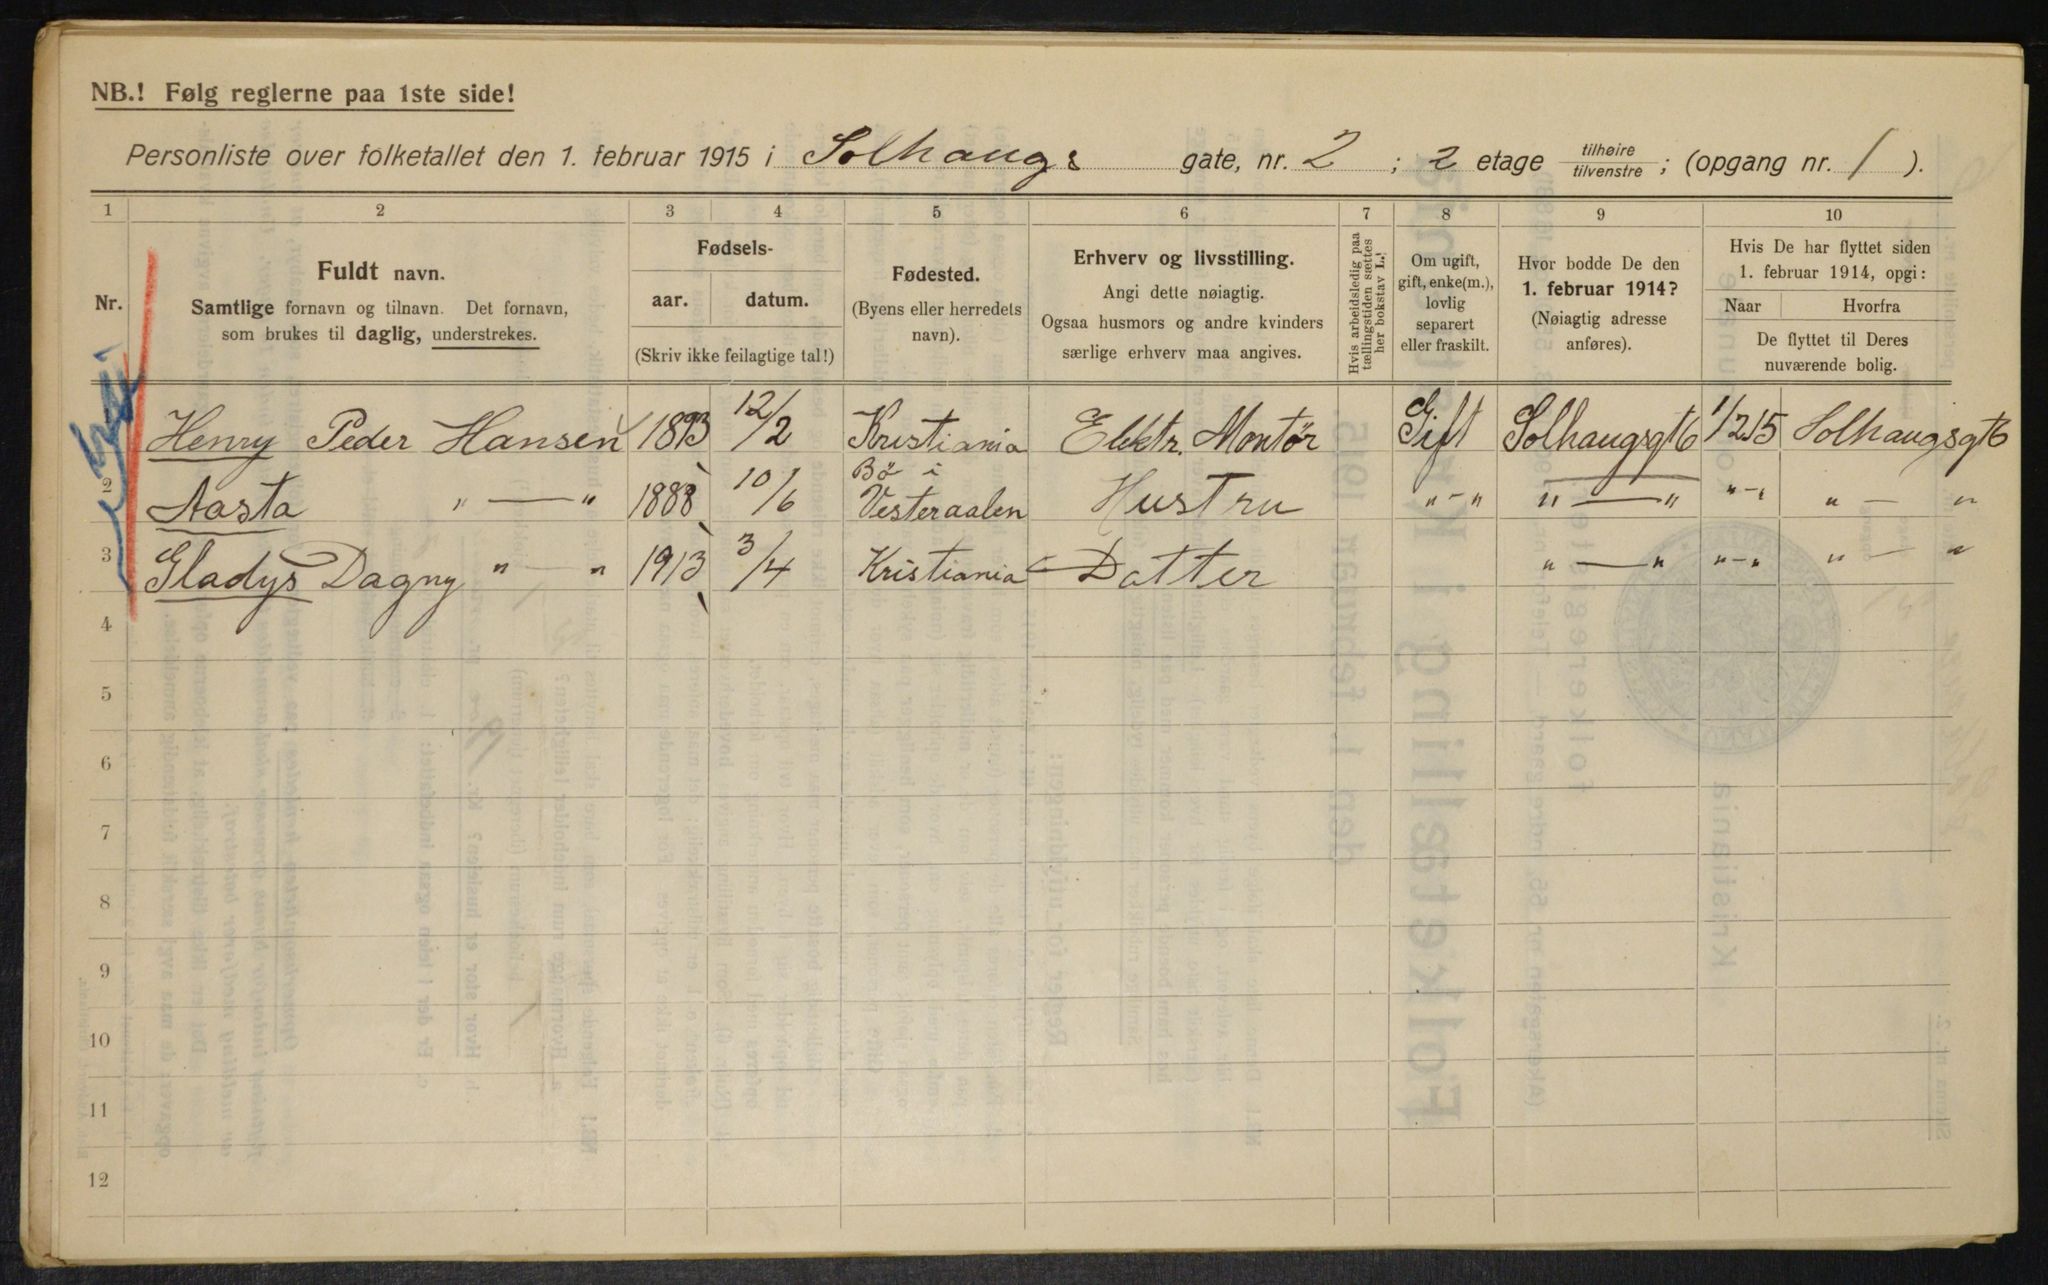 NB.! Følg reglerne paa 1ste side!
Personliste over folketallet den 1. februar 1915 i Solhaugs gate, nr. 2 ; 2 etage tilhøire tilvenstre ; (opgang nr. 1 ).
1 2 3 4 5 6 7 8 9 10
Nr.
Fuldt navn.
Samtlige fornavn og tilnavn. Det fornavn,
som brukes til daglig, understrekes.
Fødsels-
aar. datum.
(Skriv ikke feilagtige tal!)
Fødested.
(Byens eller herredets
navn).
Erhverv og livsstilling.
Angi dette nøiagtig.
Ogsaa husmors og andre kvinders
særlige erhverv maa angives.
Hvis arbeidsledig paa
tællingstiden sættes
her bokstav L.!
Om ugift,
gift, enke(m.),
lovlig
separert
eller fraskilt.
Hvor bodde De den
1. februar 1914?
(Nøiagtig adresse
anføres).
Hvis De har flyttet siden
1. februar 1914, opgi:
Naar Hvorfra
De flyttet til Deres
nuværende bolig.
Henry Peder Hansen 1893 12/2 Kristiania Elektr. Montør Gift Solhaugsgt 6 1/2 15 Solhaugsgt 6
2 Aasta " — " 1888 10/6 Bö i Vesteraalen Hustru " - " " — " " - " " — "
3 Gladys Dagny " — " 1913 3/4 Kristiania Datter " — " " - " " — "
4
5
6
7
8
9
10
11
12